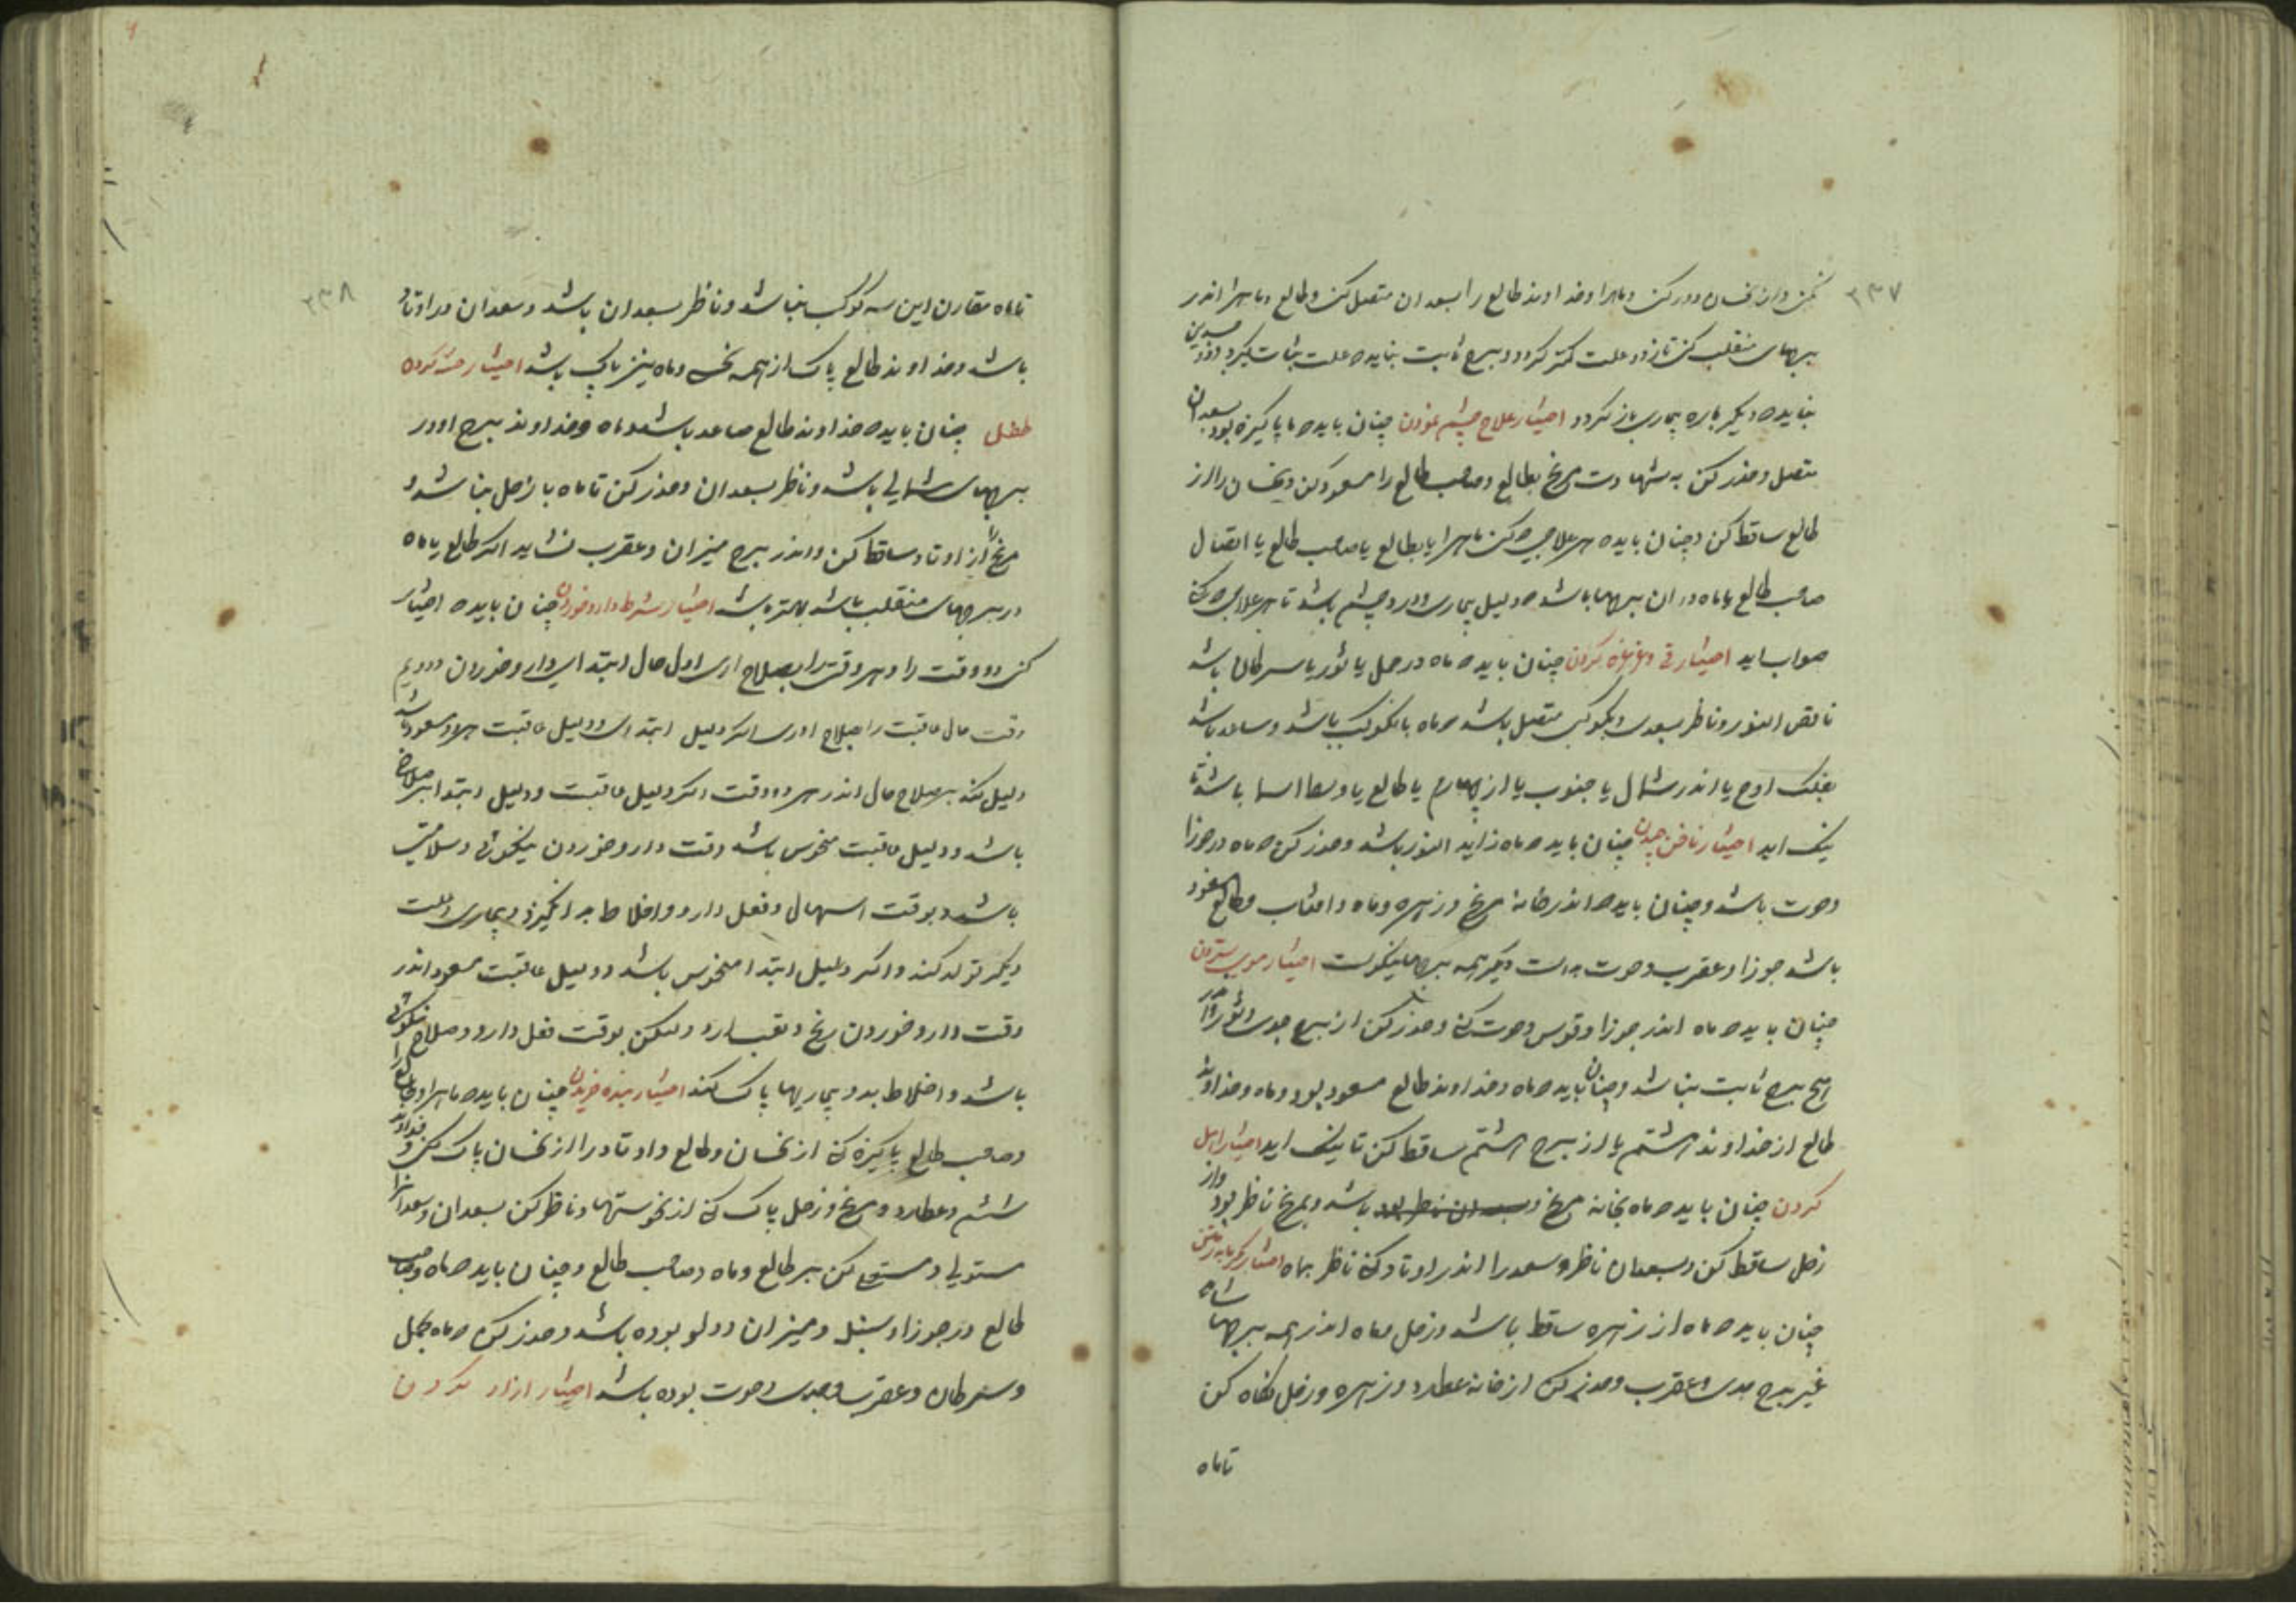 ۲۳۷
کن وان نحسان دور کن و ماه را و خداوند طالع را بسعدان متصل کن و طالع و ماه را اندر
برجهای منقلب کن تا زود علت کمتر گردد و ببرج ثابت نباید که علت ثبات گیرد و دو جسدین
نباید که دیگر باره بیماری باز گردد اختیار علاج چشم نمودن چنان باید که ماه پاکیزه بود بسعدان
متصل و حذر کن به شهادت مریخ بطالع و صاحب طالع را مسعود کن و نحسان را از
طالع ساقط کن و چنان باید که هر علاجی که کنی ماه را یا بطالع یا صاحب طالع یا اتصال
صاحب طالع و ماه در ان برجها باشد که دلیل بیماری و درد چشم باشد تا هر علاجی که کنی
صواب اید اختیار قی و غرغره کردن چنان باید که ماه در حمل یا ثور یا سرطان باشد
ناقص النور و ناظر بسعدی و بکوکبی متصل باشد که ماه بان کوکب باشد و صاعد باشد
بفلک اوج یا اندر شمال یا جنوب یا از چهارم یا طالع یا وسط السما باشد تا
نیک اید اختیار ناخن چیدن چنان باید که ماه زاید النور باشد و حذر کن که ماه در جوزا
و حوت باشد و چنان باید که اندر خانه مریخ و زهره و ماه و افتاب و طالع مسعود
باشد جوزا و عقرب و حوت بد است دیگر همه برجها نیکوست اختیار موی ستردن
چنان باید که ماه اندر جوزا و قوس و حوت کنی و حذر کن از برج جدی و ثور و اندر
هیچ برج ثابت نباشد و چنان باید که ماه و خداوند طالع مسعود بود و ماه و خداوند
طالع از خداوند هشتم یا از برج هشتم ساقط کن تا نیک اید اختیار
کردن چنان باید که ماه بخانه مریخ و بسعدان ناظر بود باشد و بمریخ ناظر بود و از
زحل ساقط کن و بسعدان ناظر و سعد را اندر اوتاد کنی ناظر بماه اختیار گرمابه رفتن
چنان باید که ماه از زهره ساقط باشد و زحل و ماه اندر همه برجها شاید
غیر برج جدی و عقرب و حذر کن از خانه عطارد و زهره و زحل نگاه کن
تا ماه
۲۳۸
تا ماه مقارن این سه کوکب نباشد و ناظر بسعدان باشد و سعدان در اوتاد
باشد و خداوند طالع پاک از همه نحس و ماه نیز پاک باشد اختیار ختنه کردن
طفل چنان باید که خداوند طالع صاعد باشد و ماه و خداوند برج او در
برجهای شمالی باشد و ناظر بسعدان و حذر کن تا ماه با زحل نباشد و
مریخ را از اوتاد ساقط کن و اندر برج میزان و عقرب نشاید اگر طالع یا ماه
در برجهای منقلب باشد بهتر باشد اختیار شرط دارو خوردن چنان باید که اختیار
کنی دو وقت را و هر دو وقت را بصلاح اری اول حال ابتدای دارو خوردن و دویم
وقت حال عاقبت را بصلاح اوری اگر دلیل ابتدای و دلیل عاقبت هر دو مسعود باشد
دلیل کند بر صلاح حال اندر هر دو وقت اگر دلیل عاقبت و دلیل ابتدا بر صلاح
باشد و دلیل عاقبت منحوس باشد وقت دارو خوردن نیکوئی و سلامتی
باشد و بوقت اسهال و فعل دارو و اخلاط بد انگیزد و بیماری و علت
دیگر تولد کند و اگر دلیل ابتدا منحوس باشد و دلیل عاقبت مسعود اندر
وقت دارو خوردن رنج و تعب ارد ولیکن بوقت فعل دارو و صلاح نیکوئی
باشد و اخلاط بد و بیماریها پاک کند اختیار بنده خریدن چنان باید که ماه را و طالع را
و صاحب طالع پاکیزه کنی از نحسان و طالع و اوتاد را از نحسان پاک کن و خداوند
ششم و عطارد و مریخ و زحل پاک کنی از نحوستها و ناظر کن بسعدان و سعدان را
مستولی و مستعلی کن بر طالع و ماه و صاحب طالع و چنان باید که ماه و صاحب
طالع در جوزا و سنبل و میزان و دلو بوده باشد و حذر کن که ماه بحمل
و سرطان و عقرب و جدی و حوت بوده باشد اختیار ازاد کردن